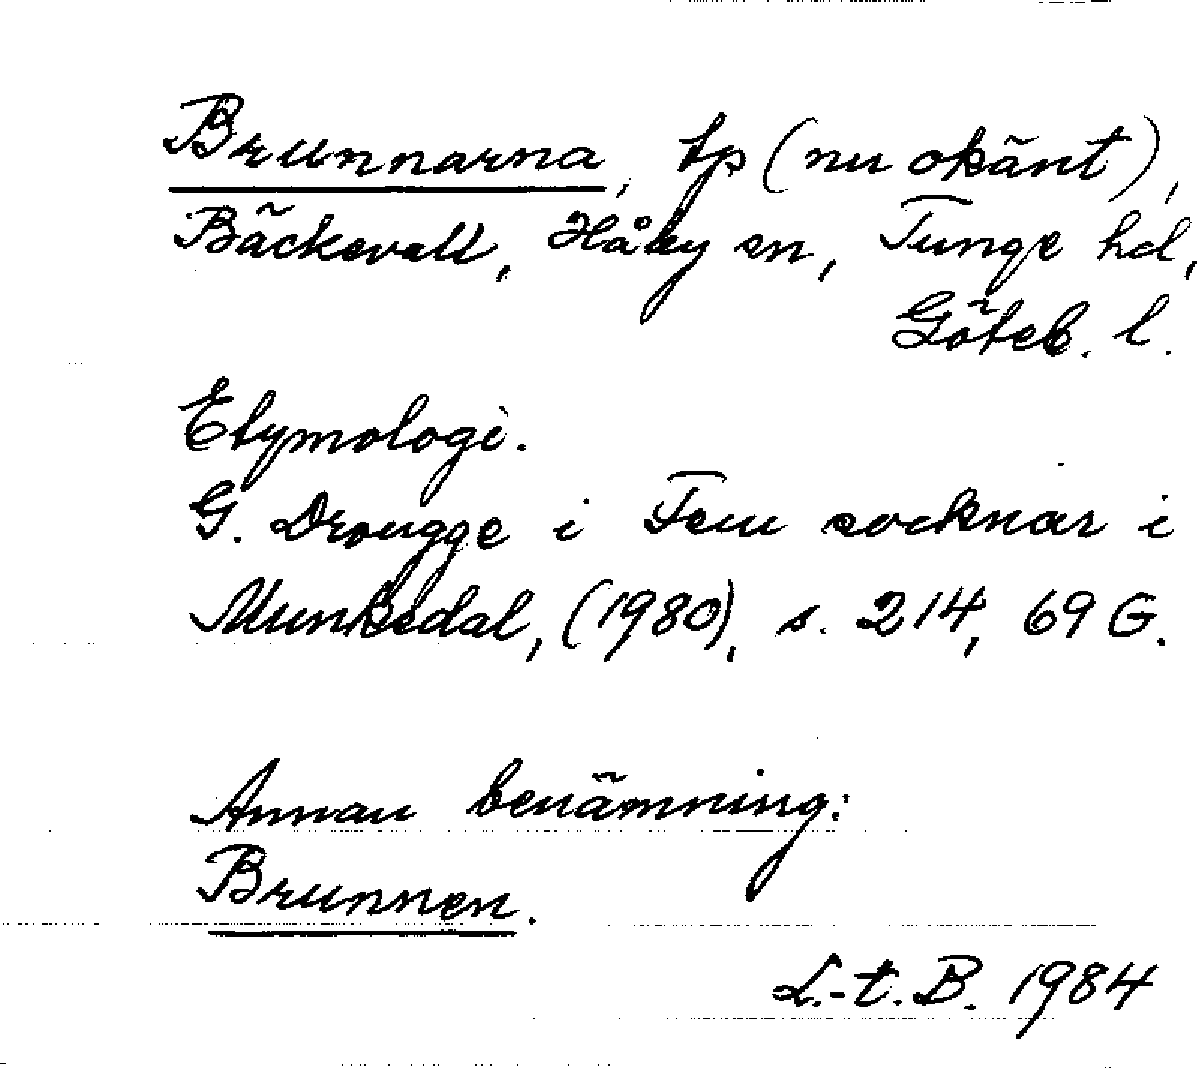 Brunnarna, tp (nu okänt),
Bäckevall, Håby sn, Tunge hd,
Göteb. l.
Etymologi.
G. Drougge i Fem socknar i
Munkedal, (1980), s. 214, 69 G.
Annan benämning:
Brunnen.
L.-t. B. 1984